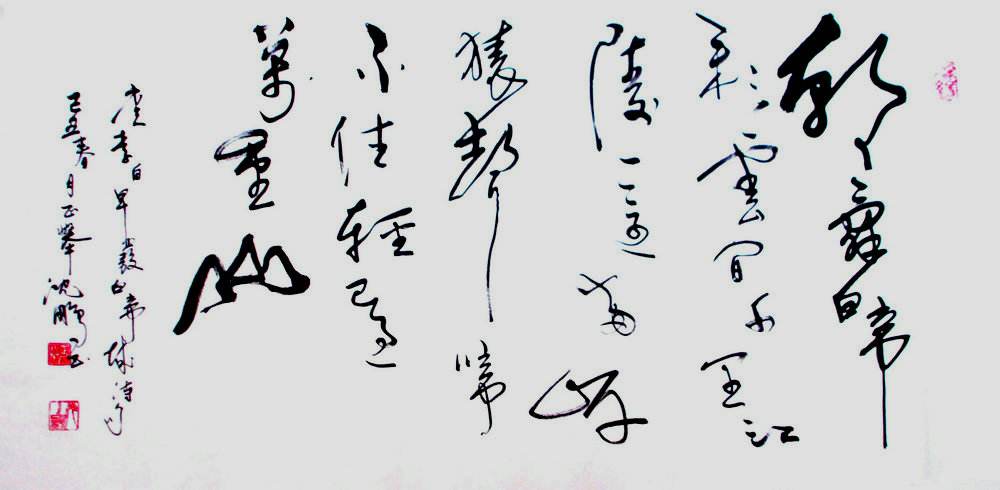 朝辭白帝
彩雲間千里江
陵一日還兩岸
猿聲啼
不住輕已過
萬重山
唐李白早發白帝城詩
己丑春月正舉沈鵬